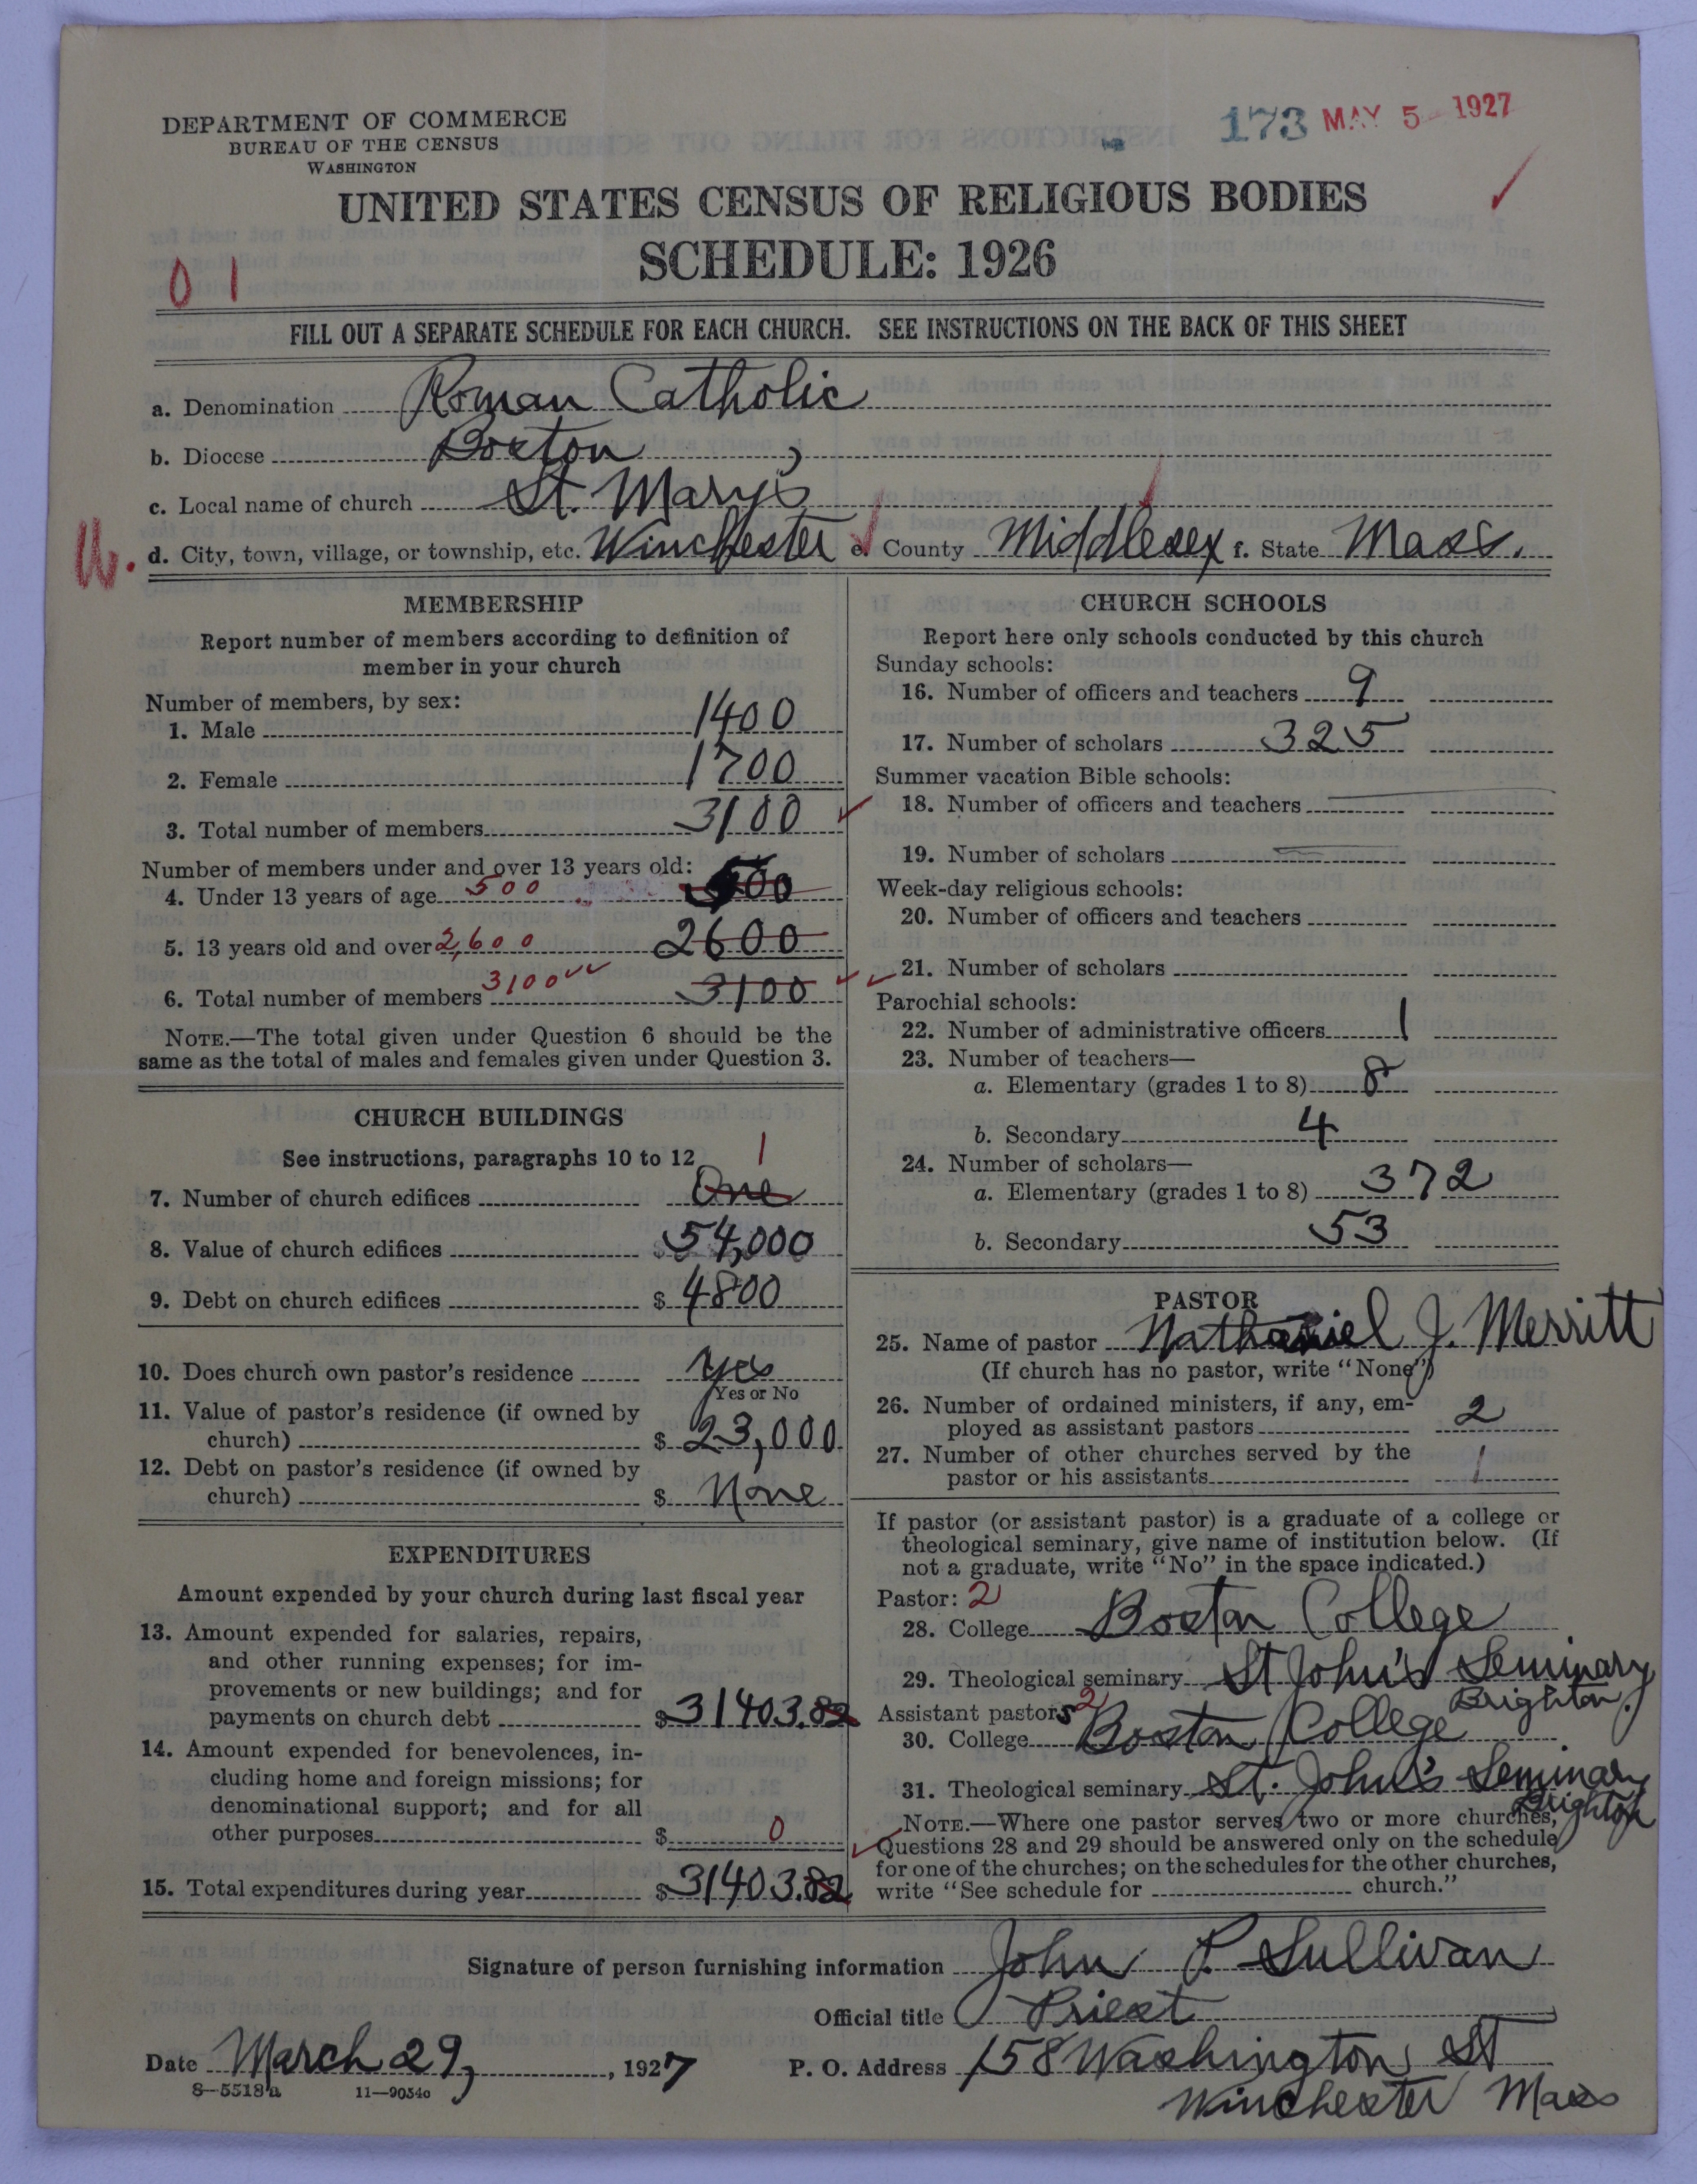 DEPARTMENT OF COMMERCE
BUREAU OF THE CENSUS
WASHINGTON
173 MAY 5 1927
UNITED STATES CENSUS OF RELIGIOUS BODIES
SCHEDULE: 1926
0 1
FILL OUT A SEPARATE SCHEDULE FOR EACH CHURCH. SEE INSTRUCTIONS ON THE BACK OF THIS SHEET
a. Denomination Roman Catholic
b. Diocese Boston
c. Local name of church St. Mary's
d. City, town, village, or township, etc. Winchester e. County Middlesex f. State Mass.
MEMBERSHIP
Report number of members according to definition of
member in your church
Number of members, by sex:
1. Male 1400
2. Female 1700
3. Total number of members 3100
Number of members under and over 13 years old:
4. Under 13 years of age 500 500
5. 13 years old and over 2,600 2600
6. Total number of members 3100 3100
NOTE.—The total given under Question 6 should be the
same as the total of males and females given under Question 3.
CHURCH BUILDINGS
See instructions, paragraphs 10 to 12
1
7. Number of church edifices One
8. Value of church edifices $54,000
9. Debt on church edifices $4800
10. Does church own pastor's residence Yes
Yes or No
11. Value of pastor's residence (if owned by
church) $23,000
12. Debt on pastor's residence (if owned by
church) $ None
EXPENDITURES
Amount expended by your church during last fiscal year
13. Amount expended for salaries, repairs,
and other running expenses; for im-
provements or new buildings; and for
payments on church debt $31403.82
14. Amount expended for benevolences, in-
cluding home and foreign missions; for
denominational support; and for all
other purposes $ 0
15. Total expenditures during year $31403.82
CHURCH SCHOOLS
Report here only schools conducted by this church
Sunday schools:
16. Number of officers and teachers 9
17. Number of scholars 325
Summer vacation Bible schools:
18. Number of officers and teachers
19. Number of scholars
Week-day religious schools:
20. Number of officers and teachers
21. Number of scholars
Parochial schools:
22. Number of administrative officers 1
23. Number of teachers—
a. Elementary (grades 1 to 8) 8
b. Secondary 4
24. Number of scholars—
a. Elementary (grades 1 to 8) 372
b. Secondary 53
PASTOR
25. Name of pastor Nathaniel J. Merritt
(If church has no pastor, write "None")
26. Number of ordained ministers, if any, em-
ployed as assistant pastors 2
27. Number of other churches served by the
pastor or his assistants 1
If pastor (or assistant pastor) is a graduate of a college or
theological seminary, give name of institution below. (If
not a graduate, write "No" in the space indicated.)
Pastor: 2
28. College Boston College
29. Theological seminary St John's Seminary
Brighton.
Assistant pastors 2
30. College Boston College
31. Theological seminary St. John's Seminary
Brighton
NOTE.—Where one pastor serves two or more churches,
Questions 28 and 29 should be answered only on the schedule
for one of the churches; on the schedules for the other churches,
write "See schedule for church."
Signature of person furnishing information John P. Sullivan
Official title Priest
Date March 29, 1927 P. O. Address 158 Washington St
8—5518a 11—9054o
Winchester Mass